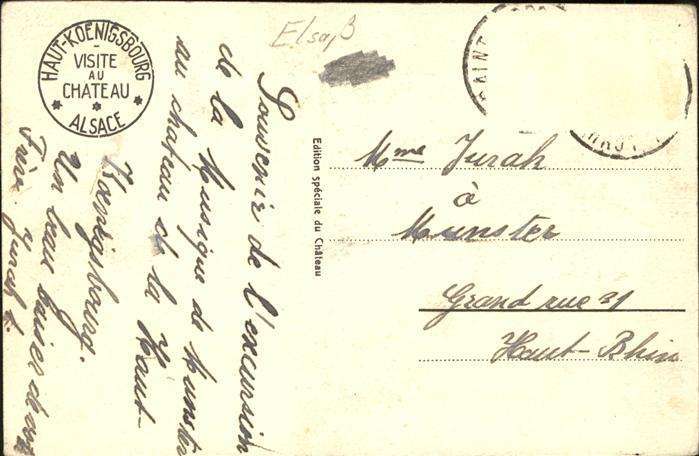 HAUT-KOENIGSBOURG
VISITE
AU
CHATEAU
ALSACE
Elsaß
Souvenir de l'excursion
de la Musique de Munster
au chateau de la Haut-
Koenigsbourg.
Un beau baiser de ton
Jurah
Edition spéciale du Château
Mme Jurah
à
Munster
Grand rue 31
Haut-Rhin
SAINT